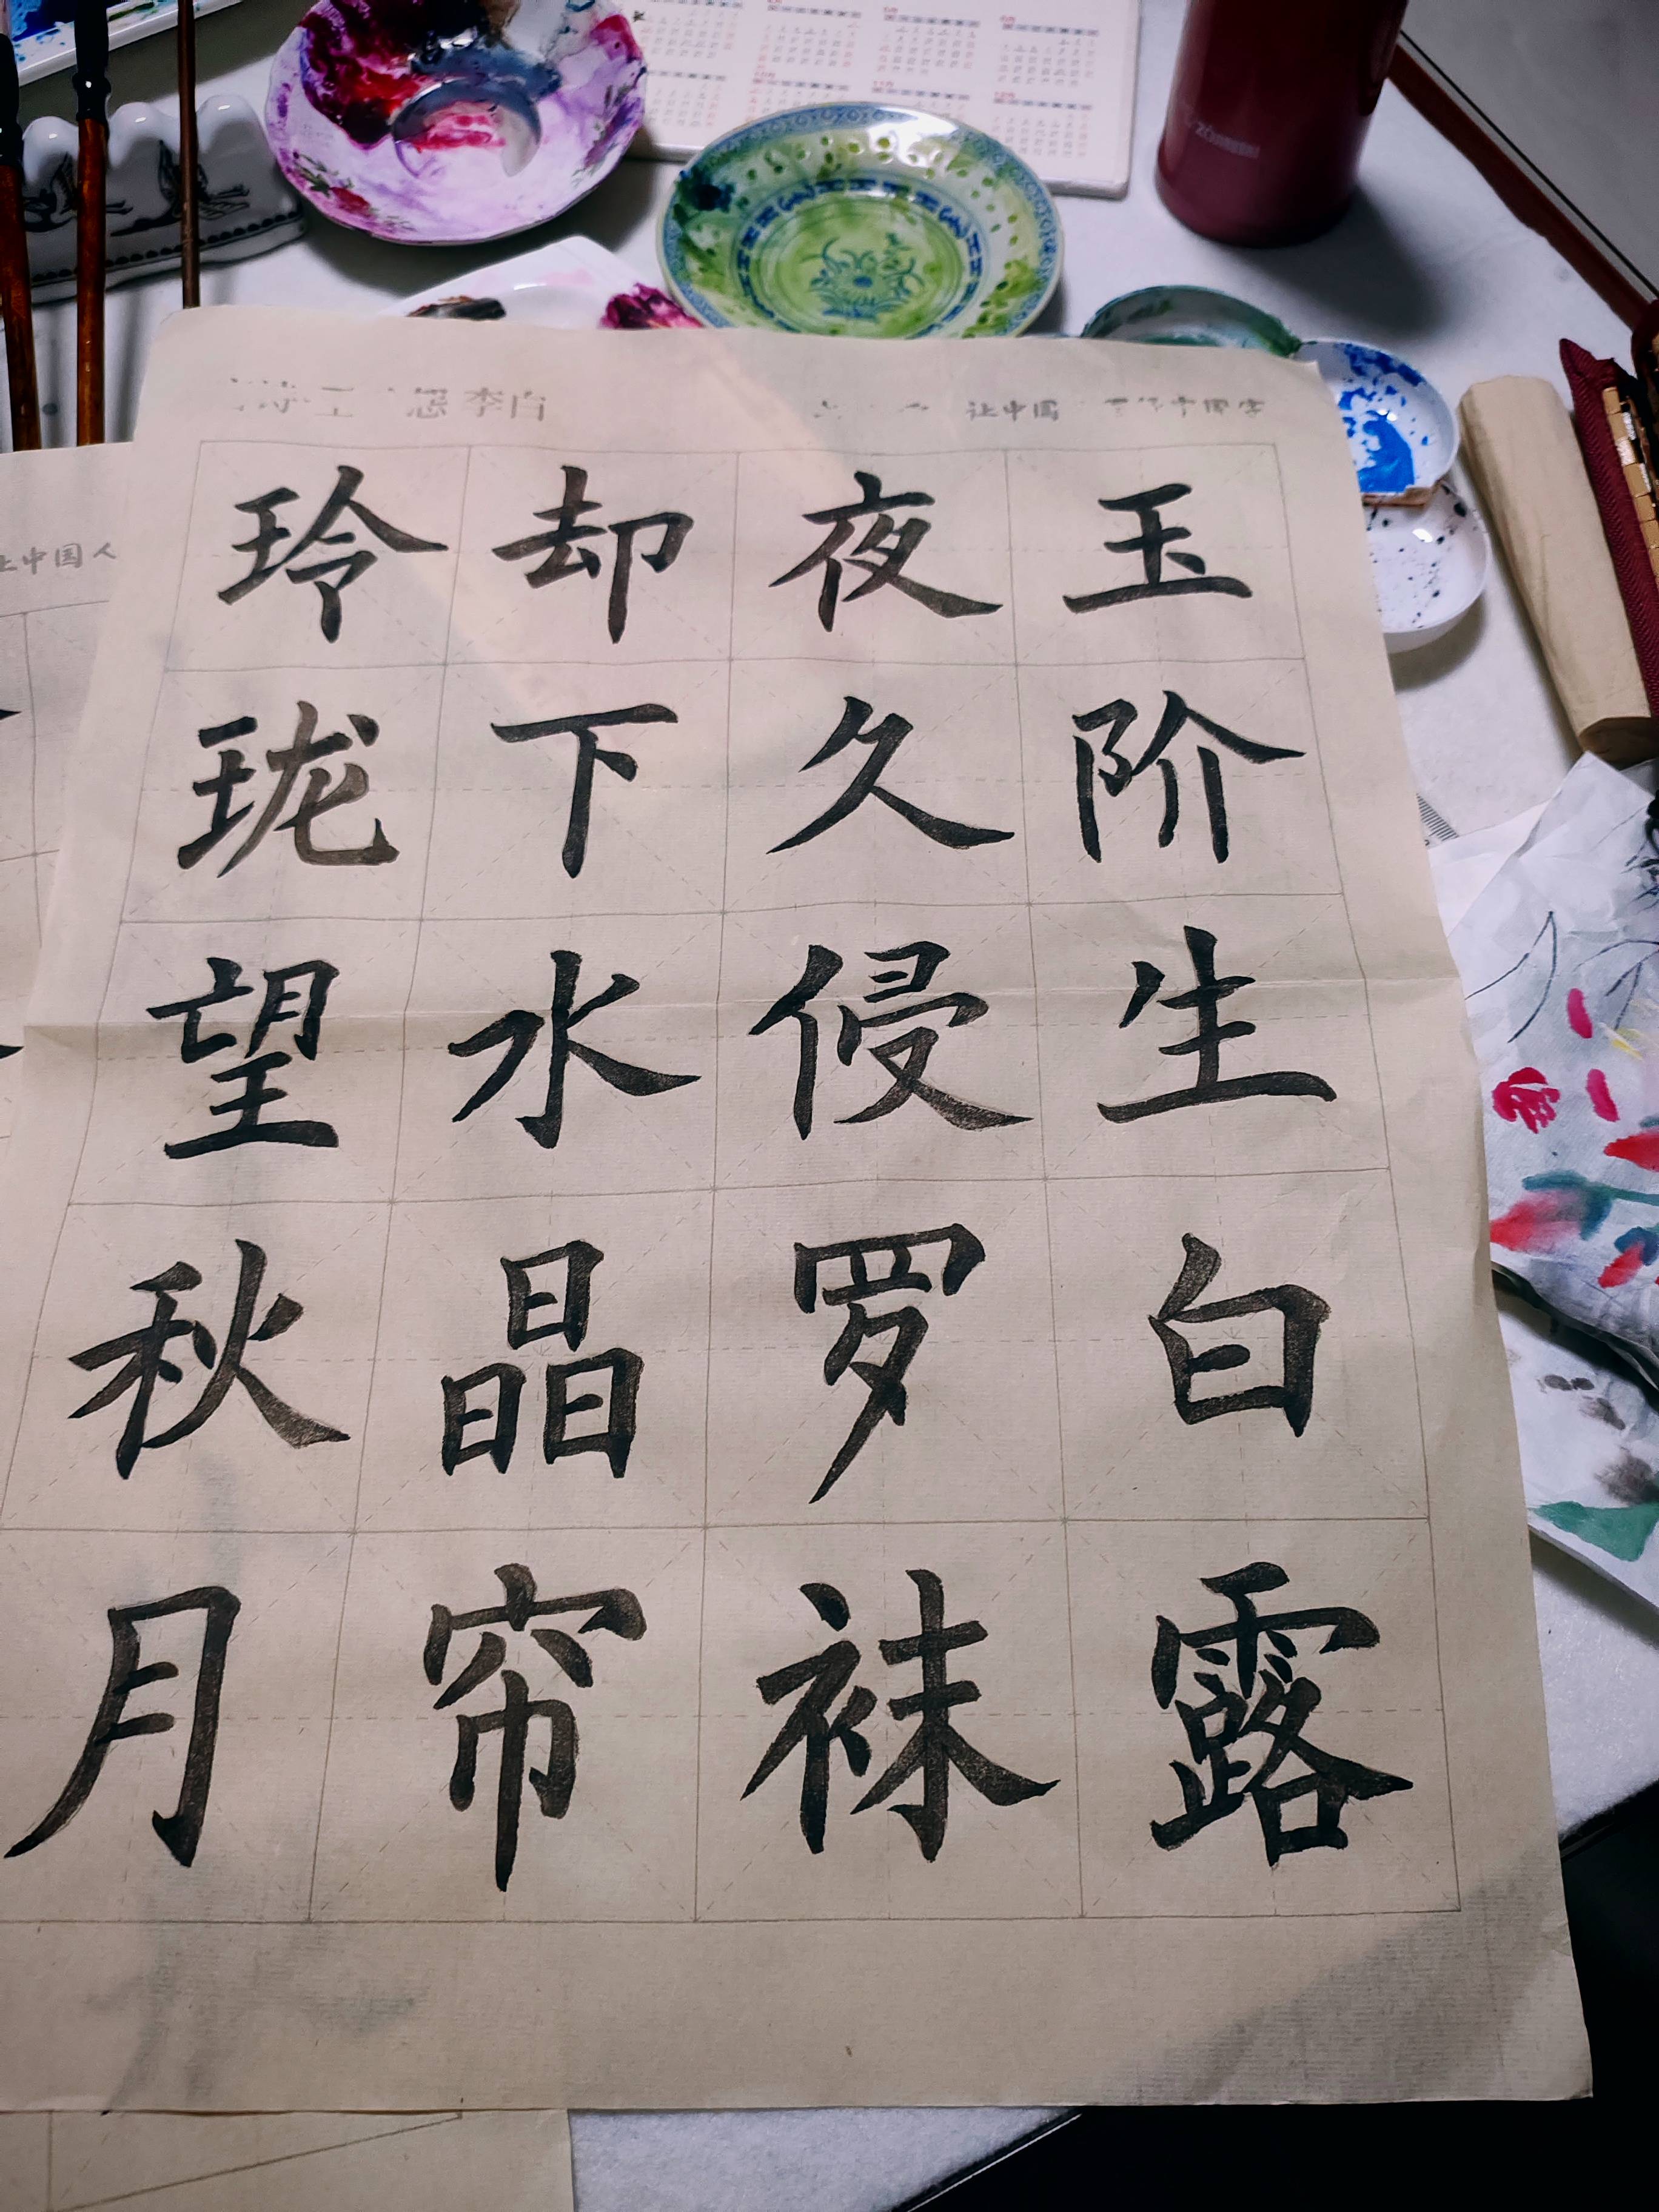 玉阶生白露
夜久侵罗袜
却下水晶帘
玲珑望秋月
怨李白
让中国
中国人